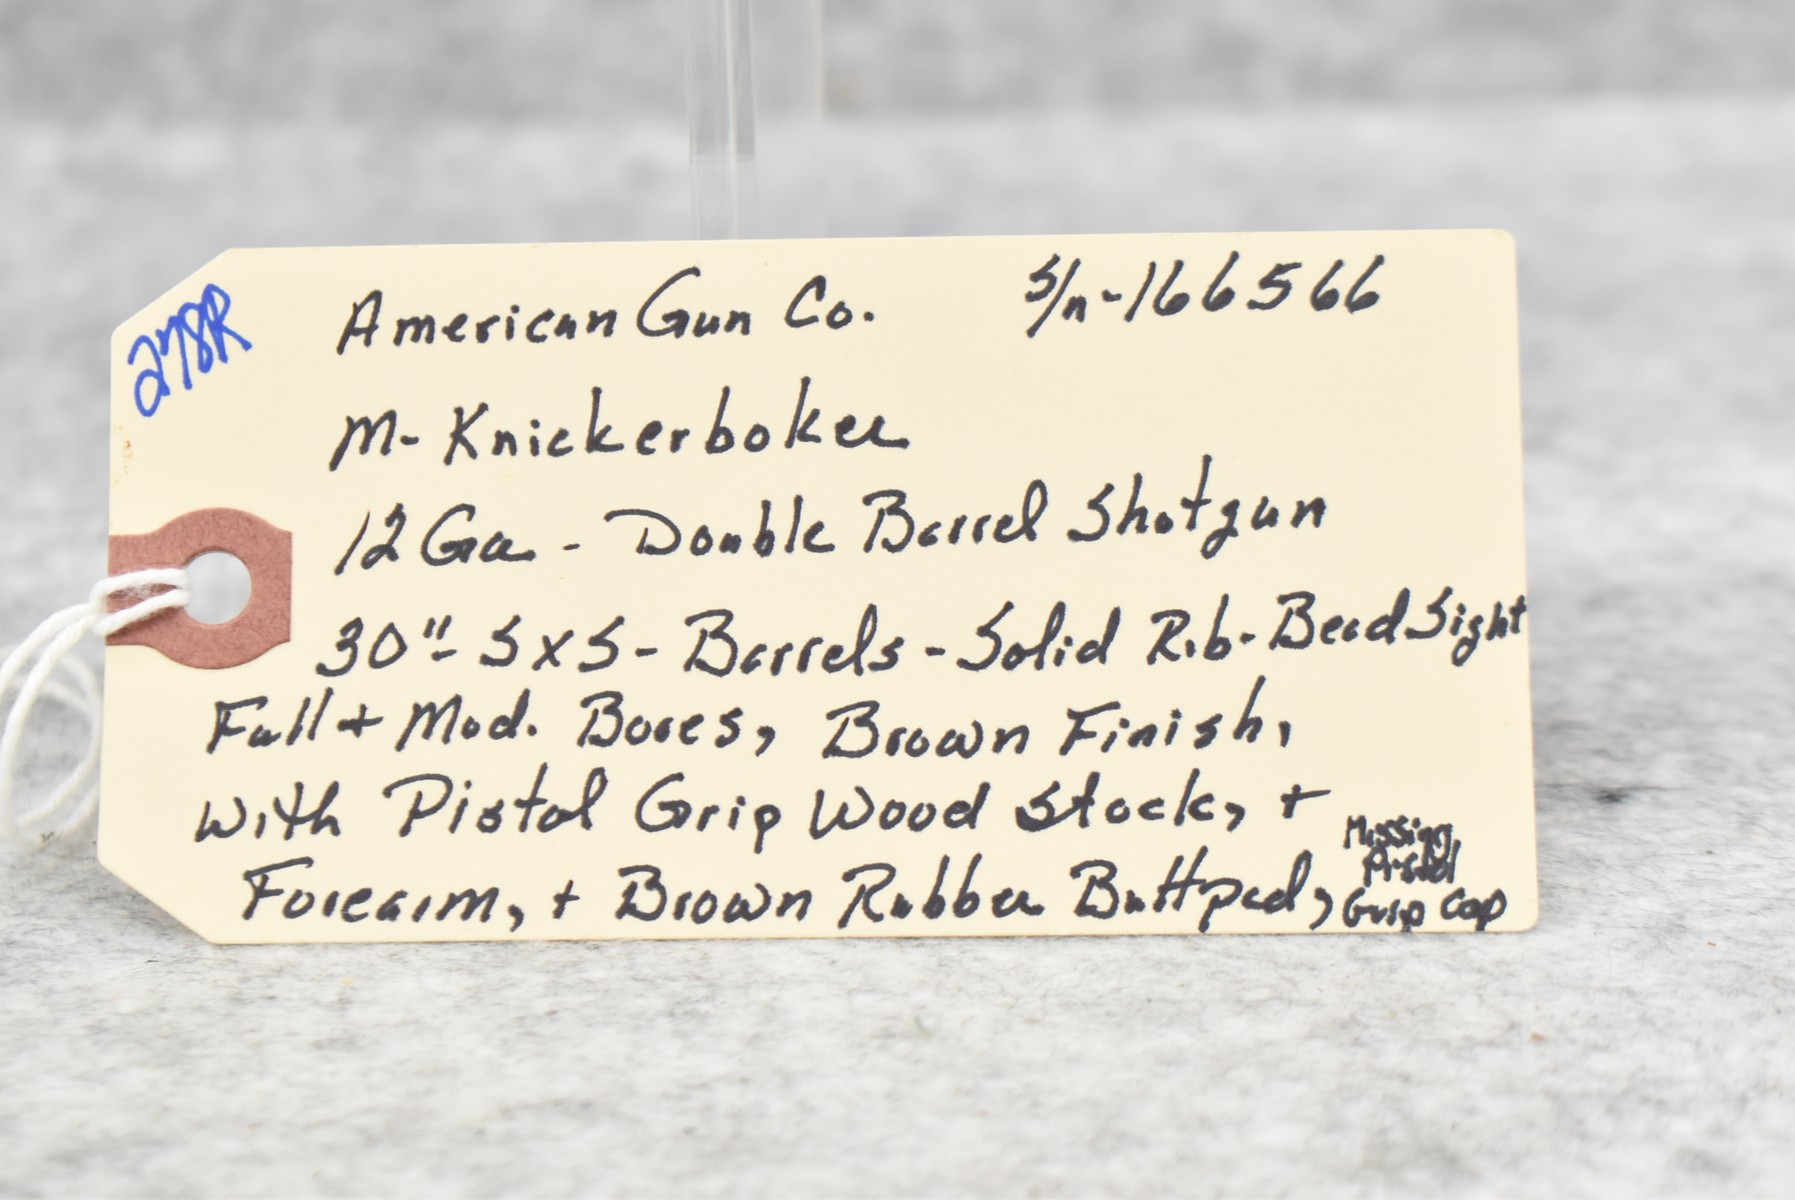 278R
American Gun Co. S/n-166566
M- Knickerboker
12 Ga - Double Barrel Shotgun
30"- SxS - Barrels - Solid Rib - Bead Sight
Full + Mod. Bores, Brown Finish,
with Pistol Grip Wood Stock, +
Forearm, + Brown Rubber Buttpad,
Missing
Pistol
Grip Cap